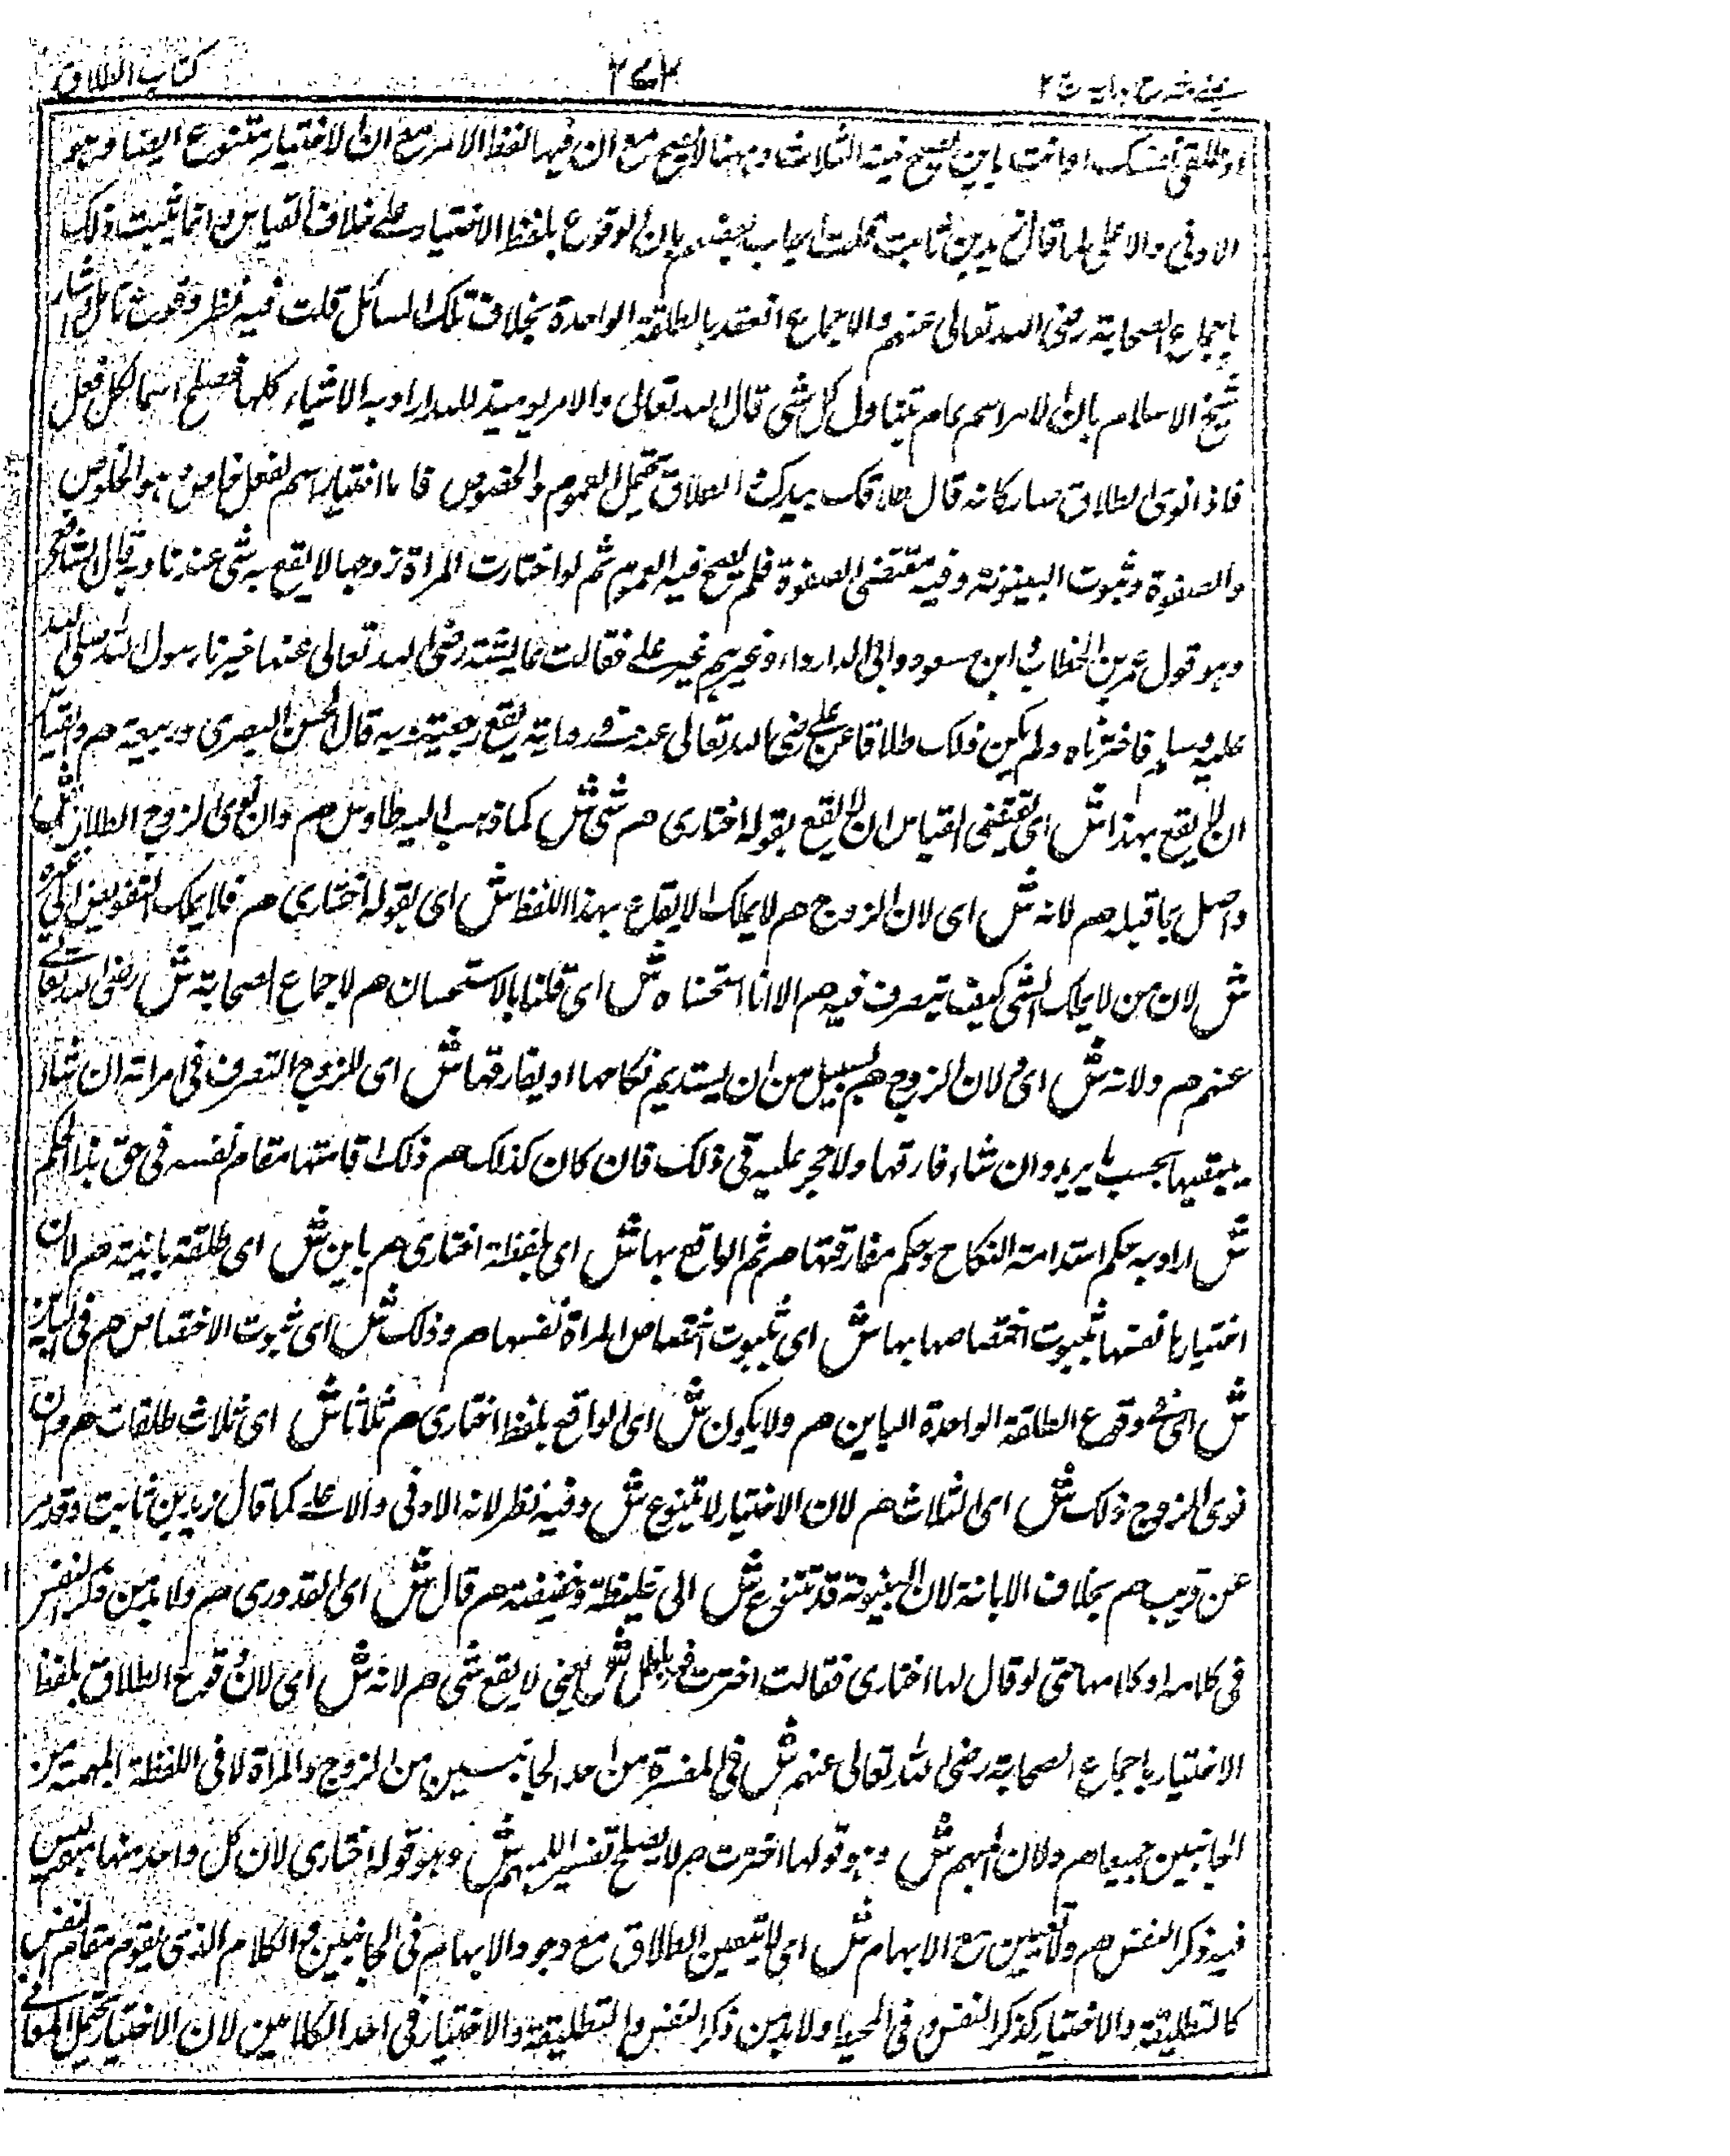 كتاب الطلاق
او طلقي نفسك او انت باين يصح نية الثلاث وههنا لا يصح مع ان فيها لفظ الامر مع ان الاختيار متنوع ايضا وهو
الادنى والاعلى لما قال زيد بن ثابت قلت اجاب بعضهم بان الوقوع بلفظ الاختيار على خلاف القياس وانما يثبت ذلك
باجماع الصحابة رضى الله تعالى عنهم والاجماع انعقد بالطلقة الواحدة بخلاف تلك المسائل قلت فيه نظر
شيخ الاسلام بان الامر اسم عام يتناول كل شى قال الله تعالى والامر يوميذ لله اراد به الاشياء كلها فصلح اسما لكل فعل
فاذا نوى الطلاق صار كانه قال طلاقك بيدك والطلاق يحتمل العموم والخصوص فاما اختيار اسم لفعل خاص وهو الخلوص
والصفوة وثبوت البينونة وفيه مقتضى الصفوة فلم يصح فيه العموم ثم لو اختارت المراة زوجها لا يقع به شى عندنا وبه قال الشافعى
وهو قول عمر بن الخطاب و ابن مسعود وابى الدرداء وغيرهم غير على فقالت عايشة رضى الله تعالى عنها خيرنا رسول الله صلى الله
عليه وسلم فاخترناه ولم يكن ذلك طلاقا عن على رضى الله تعالى عنه فى رواية يقع رجعية وبه قال الحسن البصرى وربيعة هم والقياس
ان لا يقع بهذا ش اى يقتضى القياس ان لا يقع بقوله اختارى هم شى ش كما ذهب اليه طاوس هم وان نوى الزوج الطلاق ش
واصل بما قبله هم لانه ش اى لان الزوج هم لا يملك الايقاع بهذا اللفظ ش اى بقوله اختارى هم فلا يملك التفويض الى غيره
ش لان من لا يملك الشى كيف يتصرف فيه هم الا انا استحسناه ش اى قلنا بالاستحسان هم لاجماع الصحابة ش رضى الله تعالى
عنهم هم ولانه ش اى ولان الزوج هم بسبيل من ان يستديم نكاحها او يفارقها ش اى للزوج التصرف فى امراته ان شاء
يبقيها بحسب ما يريد وان شاء فارقها ولا حجر عليه فى ذلك فان كان كذلك هم ذلك اقامتها مقام نفسه فى حق هذا الحكم
ش اراد به حكم استدامة النكاح وحكم مفارقتها هم ثم الواقع بها ش اى بلفظة اختارى هم باين ش اى طلقة باينة هم لان
اختيارها نفسها بثبوت اختصاصها بها ش اى بثبوت اختصاص المراة نفسها هم وذلك ش اى ثبوت الاختصاص هم فى الباين
ش اى فى وقوع الطلقة الواحدة الباين هم ولا يكون ش اى الواقع بلفظ اختارى هم ثلاثا ش اى ثلاث طلقات هم وان
نوى الزوج ذلك ش اى الثلاث هم لان الاختيار لا يتنوع ش وفيه نظر لانه الادنى والاعلى كما قال زيد بن ثابت وقد مر
عن قريب هم بخلاف الابانة لان البينونة قد تتنوع ش الى غليظة وخفيفة هم قال ش اى القدورى هم ولا بد من ذكر النفس
فى كلامه او كلامها حتى لو قال لها اختارى فقالت اخترت فهو باطل ش يعنى لا يقع شى هم لانه ش اى لان وقوع الطلاق بلفظ
الاختيار باجماع الصحابة رضى الله تعالى عنهم ش فى المفسرة من احد الجانبين من الزوج والمراة لا فى اللفظة المبهمة من
الجانبين جميعا هم ولان المبهم ش وهو قولها اخترت هم لا يصلح تفسير المبهم ش وهو قوله اختارى لان كل واحد منهما مبهم ليس
فيه ذكر النفس هم ولا تعيين مع الابهام ش اى لا يتعين الطلاق مع وجود الابهام فى الجانبين والكلام الذى يقوم مقام النفس
كالتطليقة والاختيار كذكر النفس و فى المحيط ولا بد من ذكر النفس والتطليقة والاختيار فى احد الكلامين لان الاختيار يحتمل